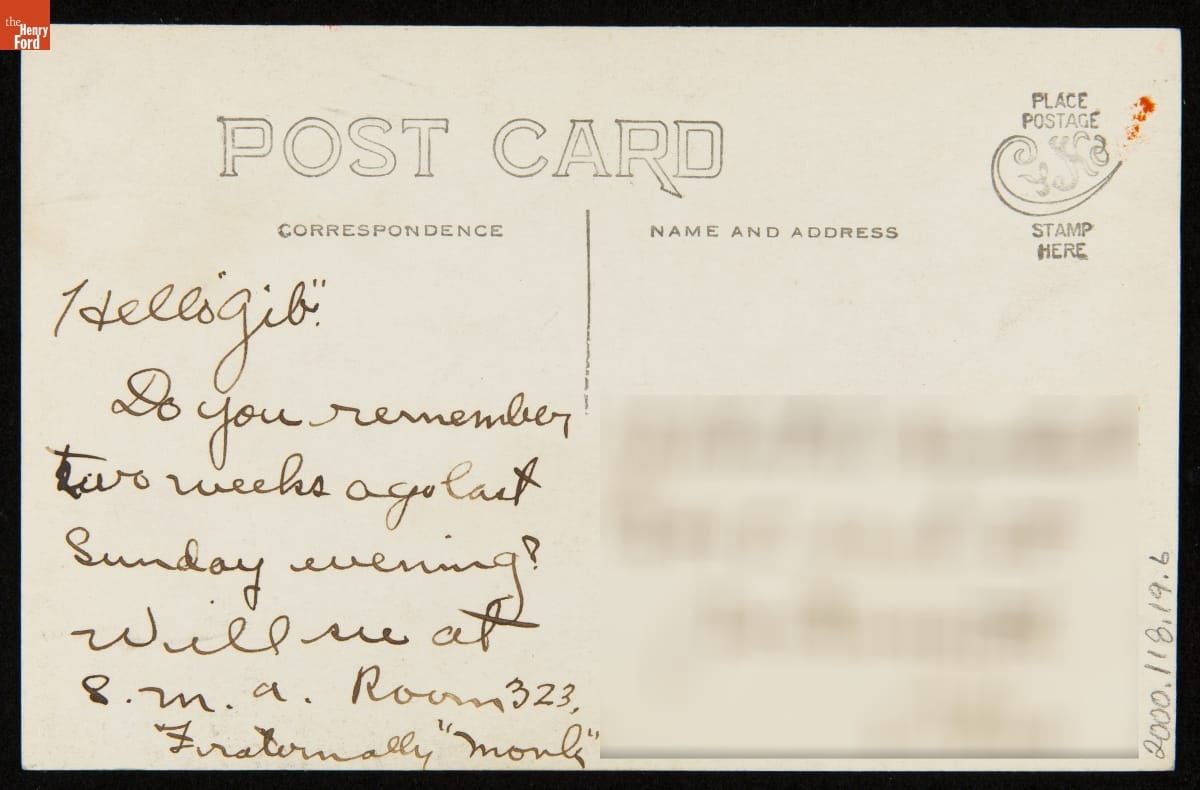 the
Henry
Ford
POST CARD
PLACE
POSTAGE
STAMP
HERE
CORRESPONDENCE
NAME AND ADDRESS
Hello "Gib".
Do you remember
two weeks ago last
Sunday evening?
Will see at
S. M. A. Room 323,
Fraternally "Monk"
2000.118.19.6